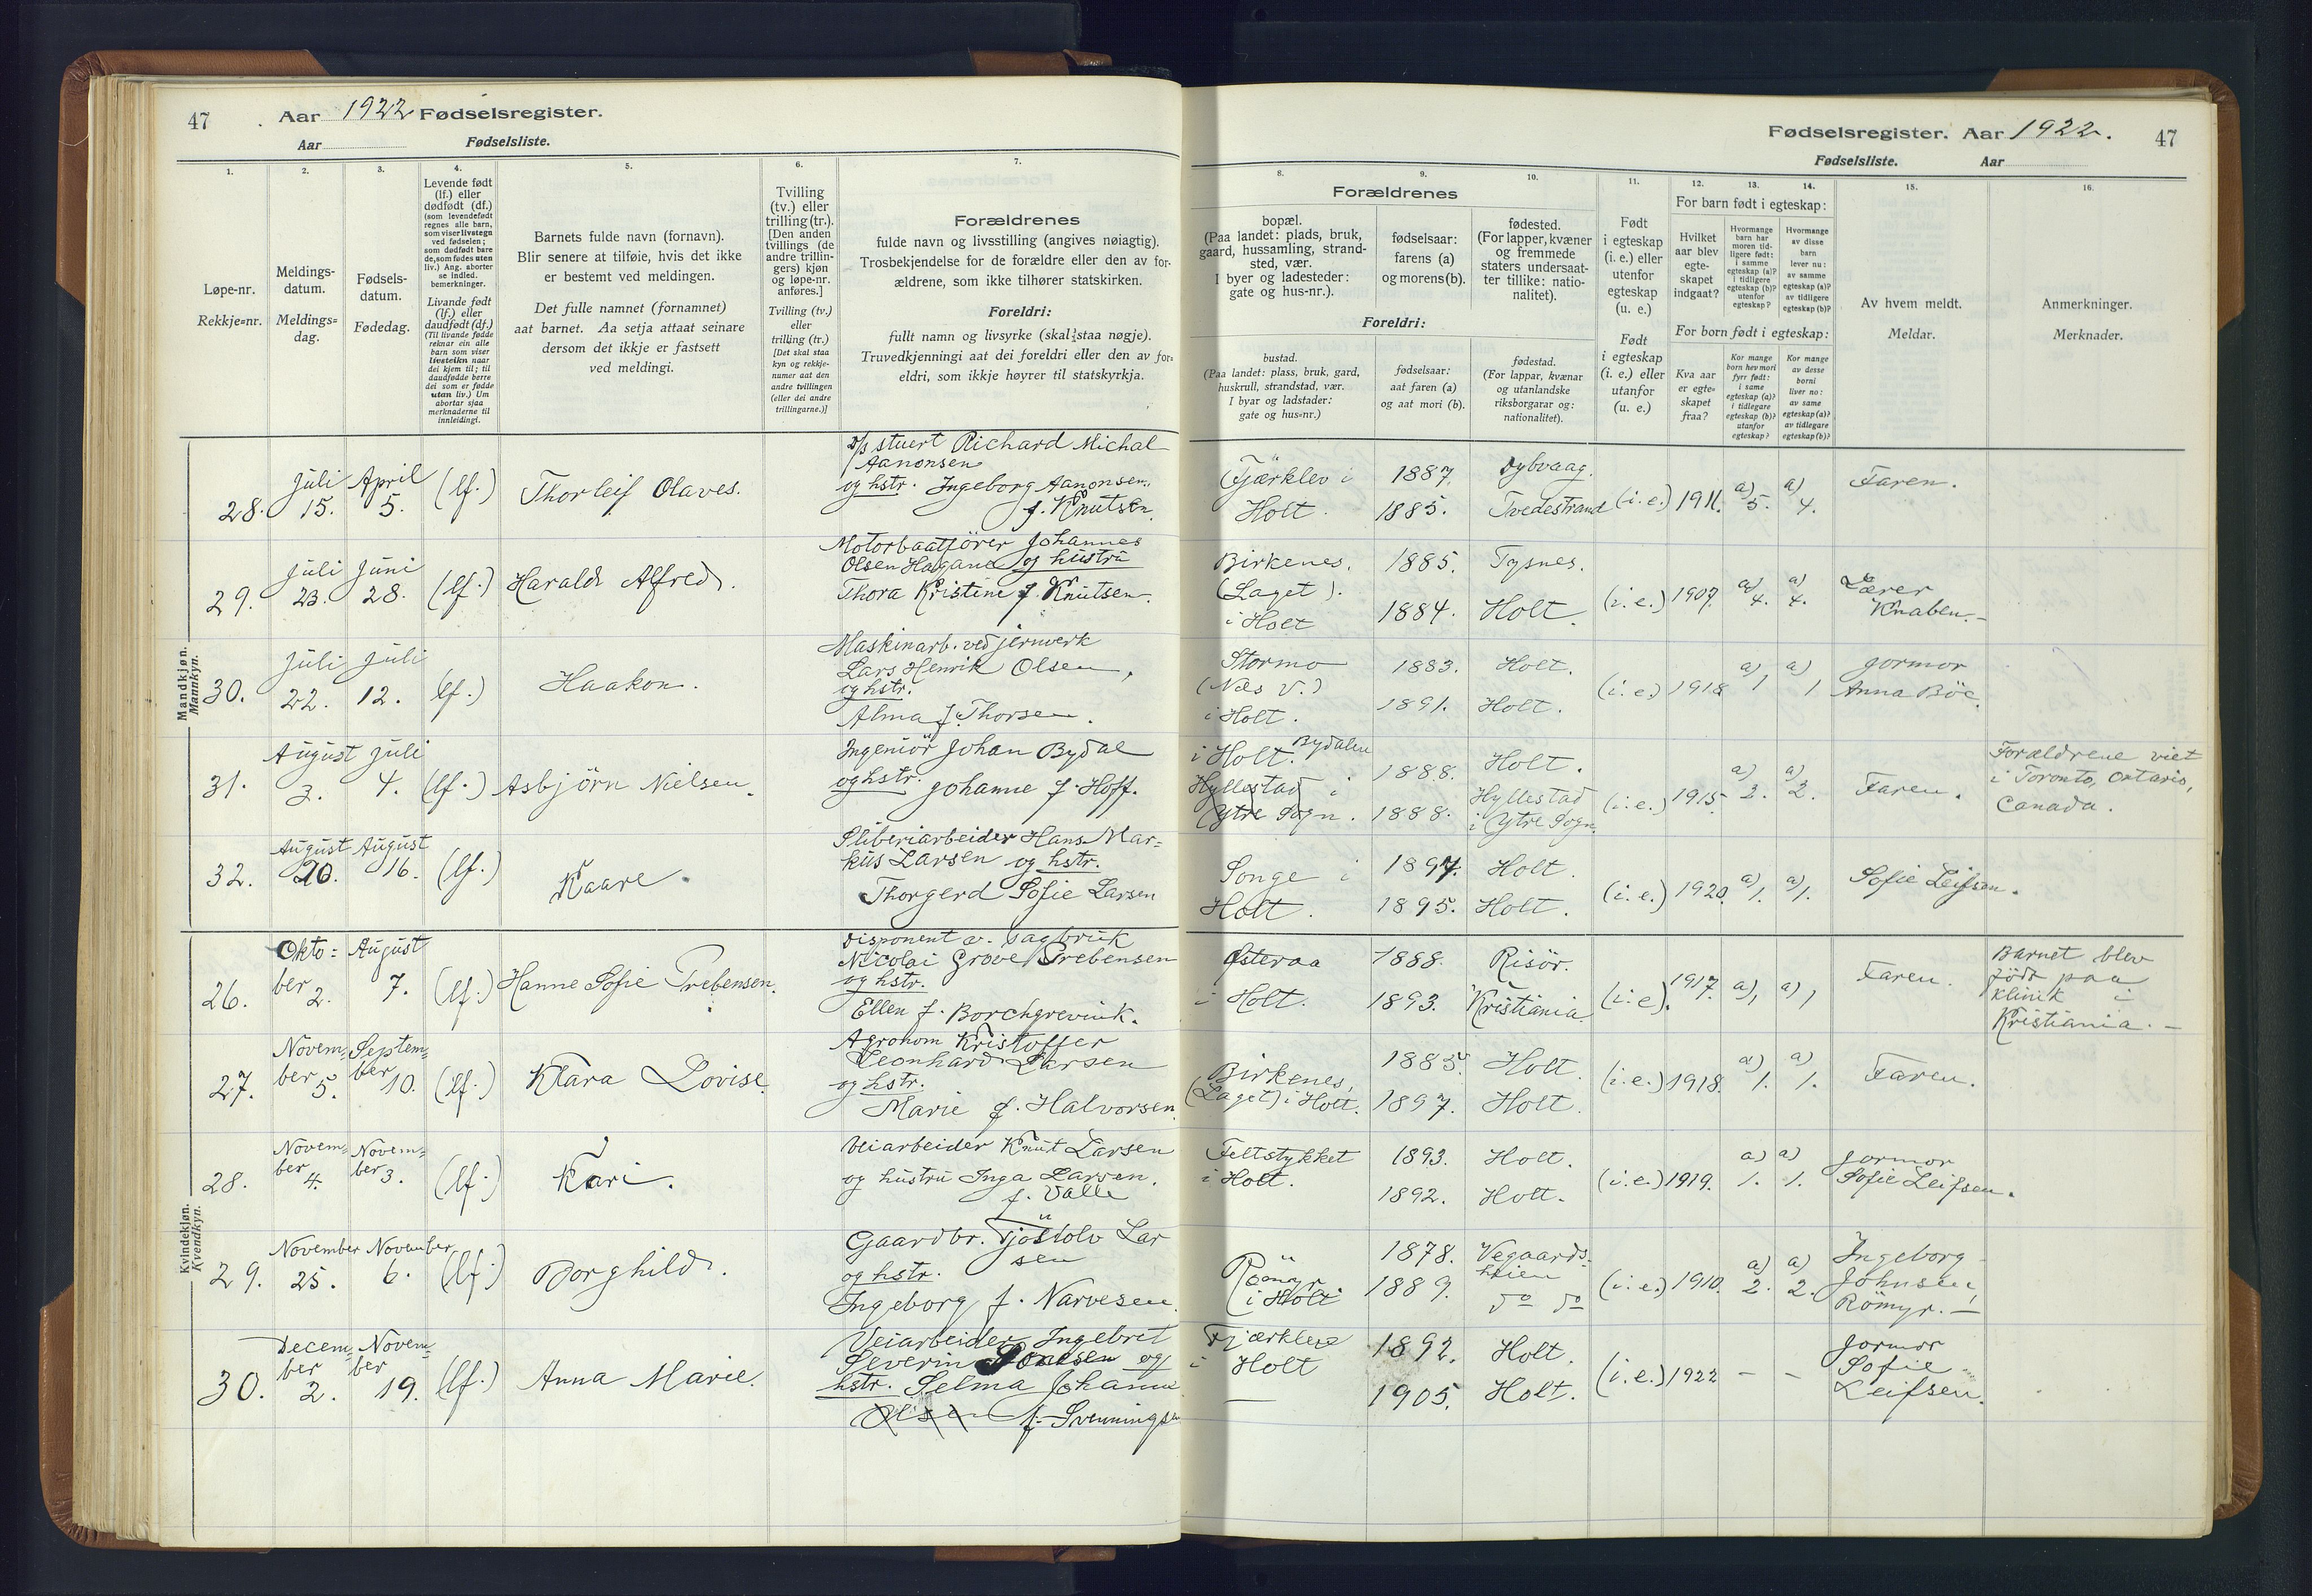 47
Aar 1922 Fødselsregister.
Aar Fødselsliste.
1.
2.
3.
4.
5.
6.
7.
Løpe-nr.
Rekkje=nr.
Meldings-
datum.
Meldings=
dag.
Fødsels-
datum.
Fødedag.
Levende født
(lf.) eller
dødfødt (df.)
(som levendefødt
regnes alle barn,
som viser livstegn
ved fødselen;
som dødfødt bare
de, som fødes uten
liv.) Ang. aborter
se indled.
bemerkninger.
Livande født
(lf.) eller
daudfødt (df.)
(Til livande fødde
reknar ein alle
barn som viser
livsteikn naar
dei kjem til; til
daudfødde berre
dei som er fødde
utan liv.) Um
abortar sjaa
merknaderne til
innleidingi.
Barnets fulde navn (fornavn).
Blir senere at tilføie, hvis det ikke
er bestemt ved meldingen.
Det fulle namnet (fornamnet)
aat barnet. Aa setja attaat seinare
dersom det ikkje er fastsett
ved meldingi.
Tvilling
(tv.) eller
trilling (tr.).
[Den anden
tvillings (de
andre trillin-
gers) kjøn
og løpe-nr.
anføres.]
Tvilling (tv.)
eller
trilling (tr.)
[Det skal staa
kyn og rekkje-
numer aat den
andre tvillingen
(eller dei andre
trillingarne.)]
Forældrenes
fulde navn og livsstilling (angives nøiagtig).
Trosbekjendelse for de forældre eller den av for-
ældrene, som ikke tilhører statskirken.
Foreldri:
fullt namn og livsyrke (skal staa nøgje).
Truvedkjenningi aat dei foreldri eller den av for-
eldri, som ikkje høyrer til statskyrkja.
Mandkjøn.
Mannkyn.
28.
Juli
15.
April
5.
(lf.)
Thorleif Olaves.
D/s stuert Richard Michal
Aanonsen
og hstr. Ingeborg Aanonsen,
f. Knutsen.
29.
Juli
23.
Juni
28.
(lf.)
Harald Alfred.
Motorbaatfører Johannes
Olsen Hagane og hustru
Thora Kristine f. Knutsen.
30.
Juli
22.
Juli
12.
(lf.)
Haakon.
Maskinarb. ved jernverk
Lars Henrik Olsen,
og hstr.
Alma f. Thorsen.
31.
August
3.
Juli
4.
(lf.)
Asbjörn Nielsen.
Ingeniör Johan Bydal
og hstr. Johanne f. Hoff.
32.
August
20.
August
16.
(lf.)
Kaare.
Sliberiarbeider Hans Mar=
kus Larsen og hstr.
Thorgerd Sofie Larsen
Kvindekjøn.
Kvendkyn.
26.
Okto=
ber 2.
August
7.
(lf.)
Hanne Sofie Prebensen.
Disponent av. sagbruk
Nicolai Grove Prebensen
og hstr.
Ellen f. Borchgrevink.
27.
Novem=
ber 5.
Septem=
ber 10.
(lf.)
Klara Lovise.
Agronom Kristoffer
Leonhard Larsen
og hstr.
Marie f. Halvorsen
28.
Novem=
ber 4.
Novem=
ber 3.
(lf.)
Kari.
Veiarbeider Knut Larsen
og hustru Inga Larsen,
f. Valle
29.
November
25.
November
6.
(lf.)
Borghild.
Gaardbr. Tjöstolv Lar
sen
og hstr.
Ingeborg f. Narvesen.
30.
Decem=
ber
2.
Novem=
ber
19.
(lf.)
Anna Marie.
Veiarbeider Ingebret
Severin og
hstr. Selma Johanne
Olsen f. Svenningsen
Fødselsregister. Aar 1922.
47
Fødselsliste. Aar
8.
9.
10.
11.
12.
13.
14.
15.
16.
Forældrenes
bopæl.
(Paa landet: plads, bruk,
gaard, hussamling, strand-
sted, vær.
I byer og ladesteder:
gate og hus-nr.).
fødselsaar:
farens (a)
og morens (b).
fødested.
(For lapper, kvæner
og fremmede
staters undersaat-
ter tillike: natio-
nalitet).
Foreldri:
bustad.
(Paa landet: plass, bruk, gard,
huskrull, strandstad, vær.
I byar og ladstader:
gate og hus=nr.)
fødselsaar:
aat faren (a)
og aat mori (b).
fødestad.
(For lappar, kvænar
og utanlandske
riksborgarar og:
nationalitet).
Født
i egteskap
(i. e.) eller
utenfor
egteskap
(u. e.)
Født
i egteskap
(i. e.) eller
utanfor
(u. e.)
For barn født i egteskap:
Hvilket
aar blev
egte-
skapet
indgaat?
Hvormange
barn har
moren tid-
ligere født:
i samme
egteskap (a)?
i tidligere
egteskap (b)?
utenfor
egteskap?
Hvormange
av disse
barn
lever nu:
av samme
egteskap (a)?
av tidligere
egteskap (b)?
For born født i egteskap:
Kva aar
er egte=
skapet
fraa?
Kor mange
born hev mori
fyrr født:
i same
egteskap (a)?
i tidlegare
egteskap (b)?
utanfor
egteskap?
Kor mange
av desse
borni
liver no:
av same
egteskap (a)?
av tidlegare
egteskap (b)?
Av hvem meldt.
Meldar.
Anmerkninger.
Merknader.
Fjærklev i
Holt.
1887.
1885.
Dybvaag.
Tvedestrand
(i. e.)
1911.
a)
5.
a)
4.
Faren.
Birkenes.
(Laget).
i Holt
1885.
1884.
Tysnes.
Holt.
(i. e.)
1907.
a)
4.
a)
4.
Lærer
Knaben.-
Stormo
(Næs V.)
i Holt.
1883.
1891.
Holt.
Holt.
(i. e.)
1918
a)
1
a)
1
Jormor
Anna Böe.
i Holt. Bydalen
Hyllestad i
Ytre Sogn.
1888.
1888.
Holt.
Hyllestad
i Ytre Sogn.
(i. e.)
1915.
a)
2.
a)
2.
Faren.
Forældrene viet
i Toronto, Ontario,
Canada.
Songe i
Holt.
1897.
1895.
Holt.
Holt.
(i. e.)
1920.
a)
1.
a)
1.
Sofie Leifsen.
Østeraa
i Holt.
1888.
1893.
Risör.
Kristiania.
(i. e.)
1917.
a) 1
a) 1
Faren.
Barnet blev
född paa
klinik i
Kristiania. —
Birkenes,
(Laget) i Holt.
1885.
1897.
Holt.
Holt.
(i. e.)
1918.
a)
1.
a)
1.
Faren.
Feltstykket
i Holt.
1893.
1892.
Holt.
Holt.
(i. e.)
1919.
a)
1.
a)
1.
Jormor
Sofie Leifsen.
Römyr
i Holt
1878.
1889.
Vegaards-
heien
do do
(i. e.)
1910.
a)
2.
a)
2.
Ingeborg
Johnsen,
Römyr. —
Fjærkleve
i Holt
—
1892.
1905.
Holt.
Holt.
(i. e.)
1922
—
—
Jormor
Sofie
Leifsen.